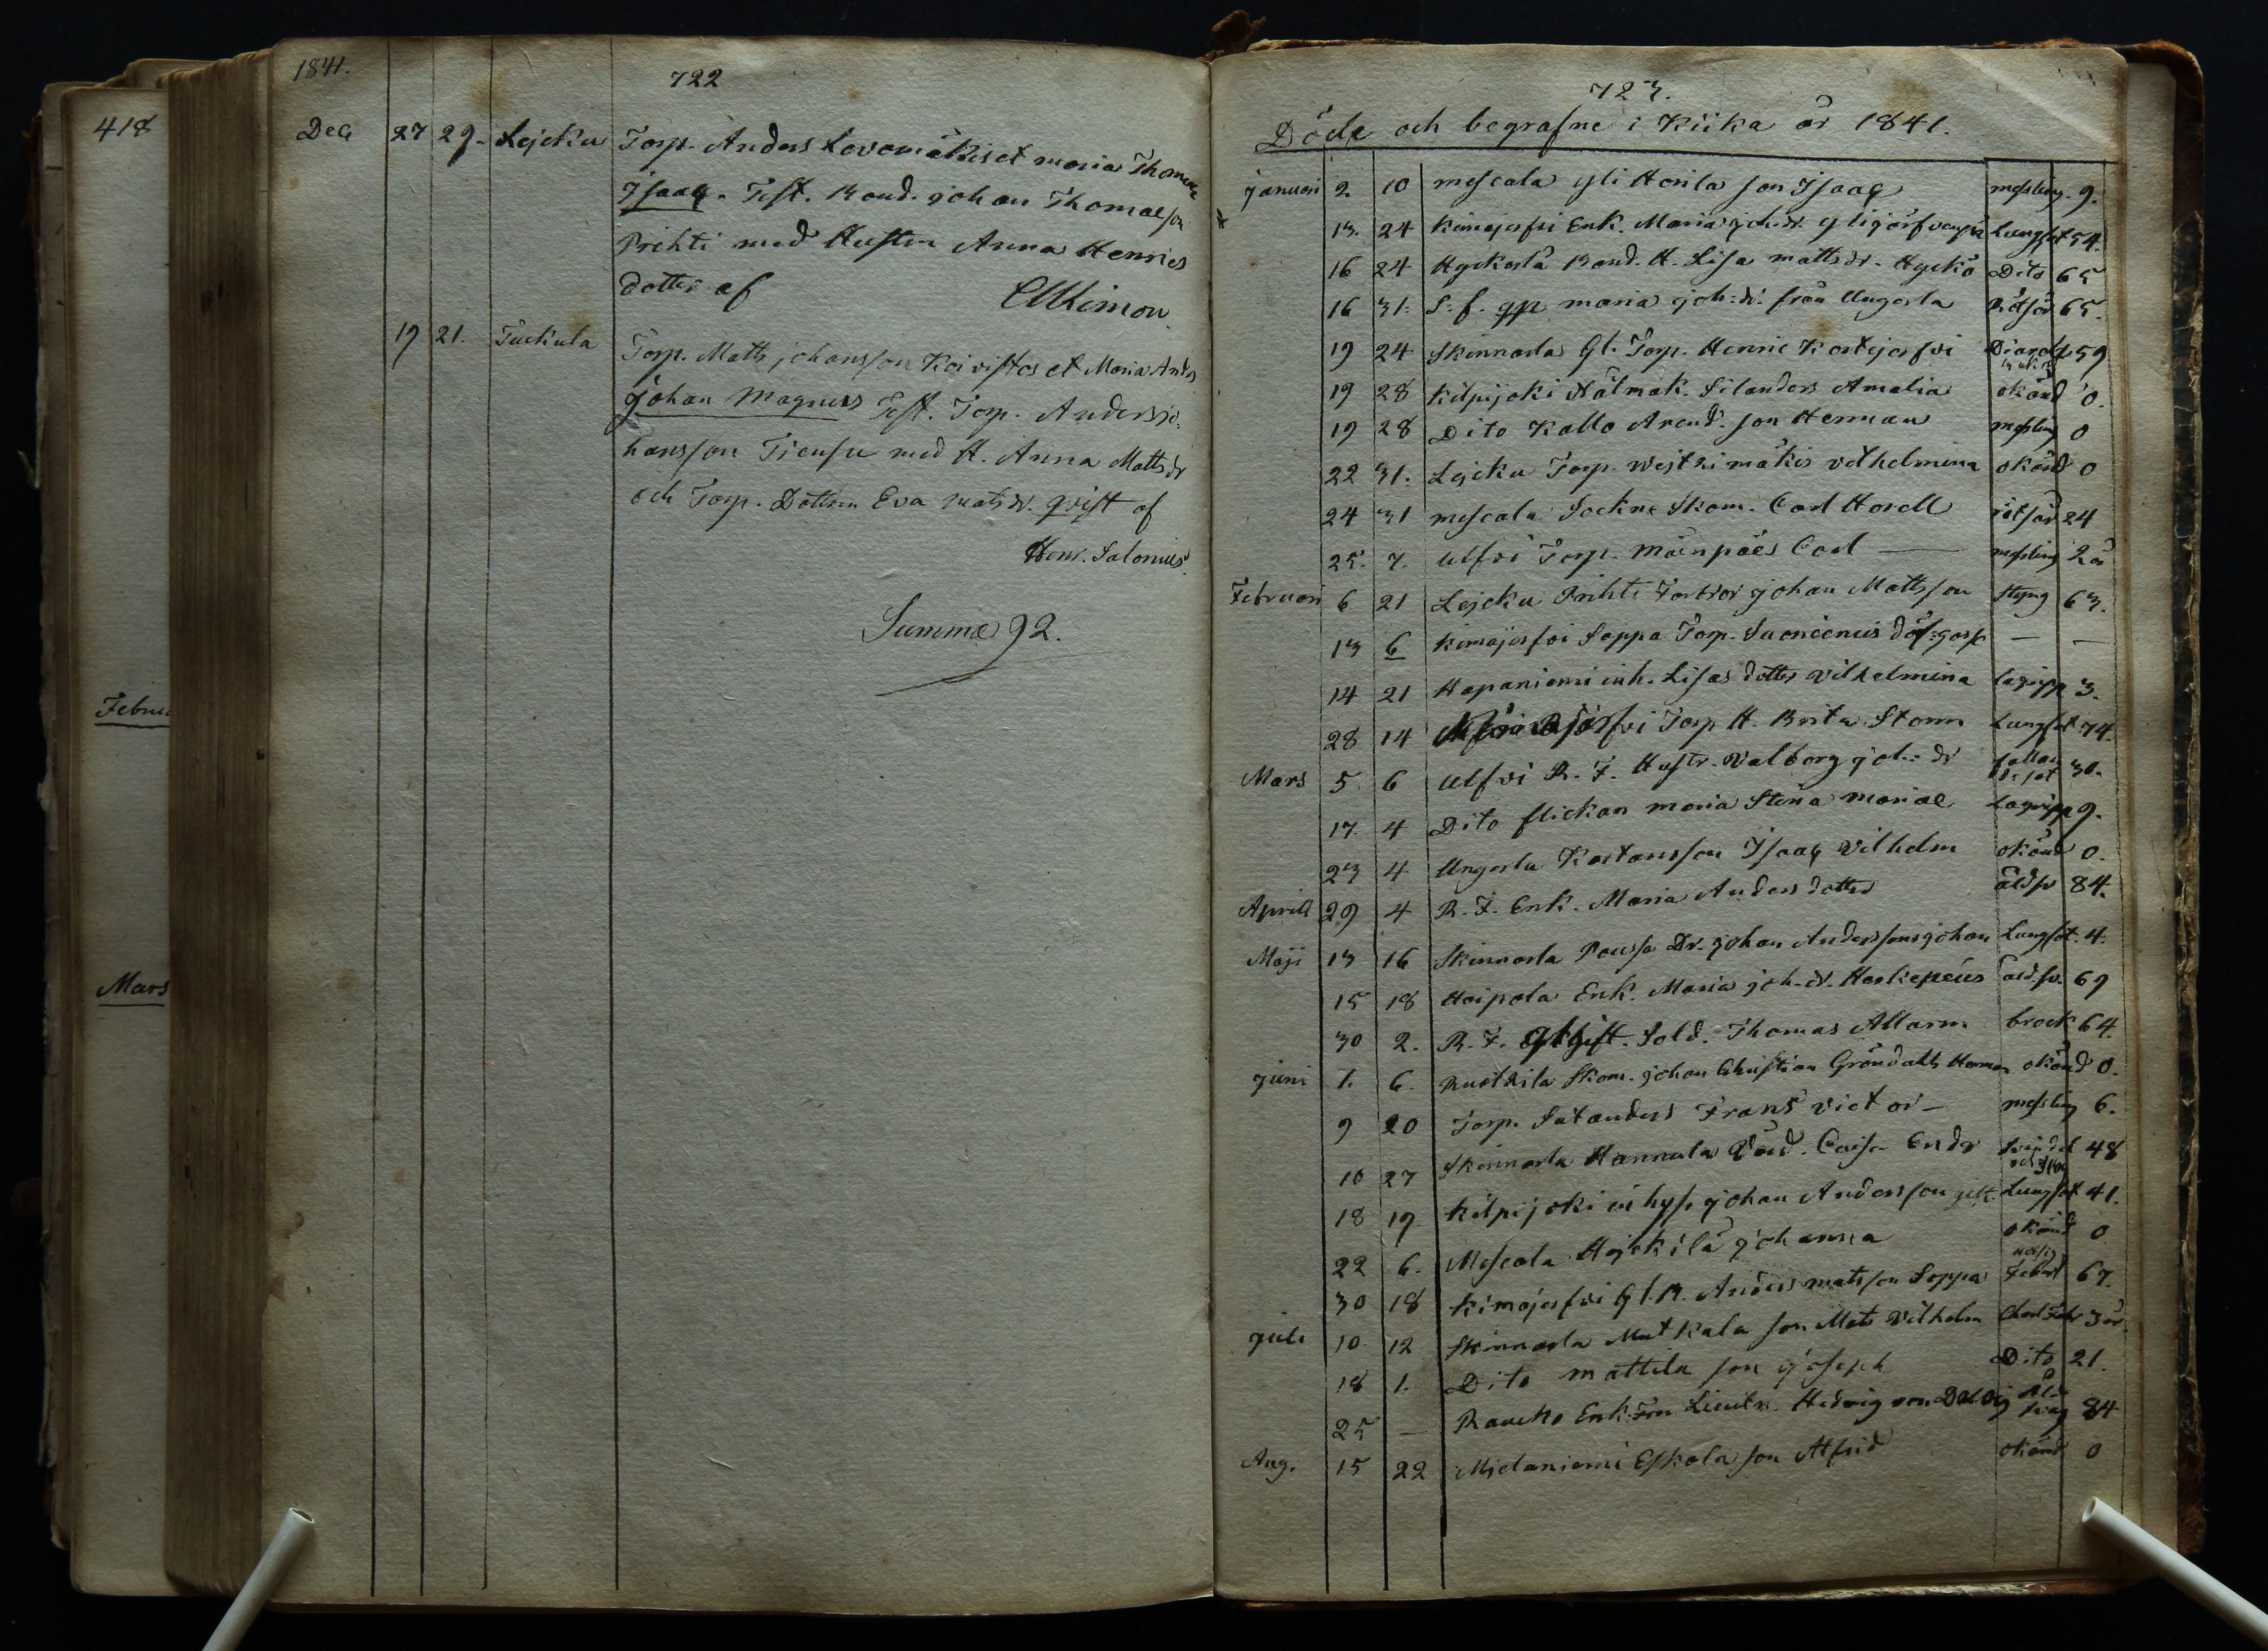 418
Februa
Mars
1841.
722
Dec 27 29. Lejcku Torp. Anders Lovomäkis et Maria Thomæ
Isaac. Test. Bond. Johan Thomasson
Prihti med Hustru Anna Henrics
dotter af C Ukimon
19 21. Tuckula Torp. Matts Johansson Koivistos et Maria Anders
Johan Magnus Test. Torp. Anders Jo-
hansson Tiensu med H. Anna Matts dr
och Torp. Dottren Eva Mats dr. gift af
Henr. Salonius.
Summa 92.
723.
Döde och begrafne i Kiika år 1841.
Januari 2. 10 Mescala yli Horila son Isaac messling. 9.
13. 24 Kimajerfvi Enk. Maria Joh. dr. Lungsot 54.
16 24 Hyckerlä Bond. H. Lisa Matts dr. Hyckö Dito 65
16 31. S. f. gp Maria Joh: dr. från Ungerla Rötsår 65.
19 24 Skinnarla Gl. Torp. Henric Kortejerfvi 59
19 28 Kilpijoki Nålmak. Silanders Amalia okänd 0.
19 28 Dito Kallo Arend. son Herman messling 0
22 31. Lejcku Torp. Wejtkimäkis Vilhelmina okänd 0
24 31 Mescala Sockne Skom. Carl Horell rötsår 24
25. 7. Ulfvi Torp. Mäenpäes Carl — messling 2 år
Februari 6 21 Lejcku Prihti Johan Mattsson Styng 63.
13 6 Kimajerfvi Soppa Torp. Suoniemis döf: goss — —
14 21 Hapaniemi inh. Lisas dotter Vilhelmina lagripp 3.
28 14 Torp H. Brita Storm Lungsot 74.
Mars 5. 6 Ulfvi R. F. Hustr. Valborg Joh: dr fallan de sot 30.
17. 4 Dito flickan Maria Stina Mariæ Lagripp 9.
23 4 Ungerla Kartansson Isaac Vilhelm okänd 0.
April 29 4 R. F. Enk. Maria Anders dotter åldsv 84.
Maji 13 16 Skinnarla Pousa Dr. Johan Anderssons Johan Lungsot. 4.
15 18 Haipola Enk. Maria Joh. dr. Haskepeus åld. sv. 69
30 2. R. F. Sold. Thomas Allarm brock 64.
Juni 1. 6. Ruotzila Skom. Johan Christian Gröndahls Herman okänd 0.
9 20 Torp. Satanders Frans Victor — messling 6.
10 27 Skinnarla Hannula Cajsa Er. dr 48
18 19 Kilpijoki in hys. Johan Andersson Lungsot 41.
22 6. Mescala Hejckilä Johanna okänd 0
30 18 Kimajerfvi Gl. B. Anders Matsson Soppa Feber 67.
Juli 10 12 Skinnarla Mutkala son Mats Vilhelm 3 år.
18 1. Dito Mattila son Joseph Dito 21.
25 — Raucko Enk. Fru Lieutn. Hedvig von Dålder svag 84
Aug. 15 22 Mjelaniemi Eskola son Alfrid okänd 0